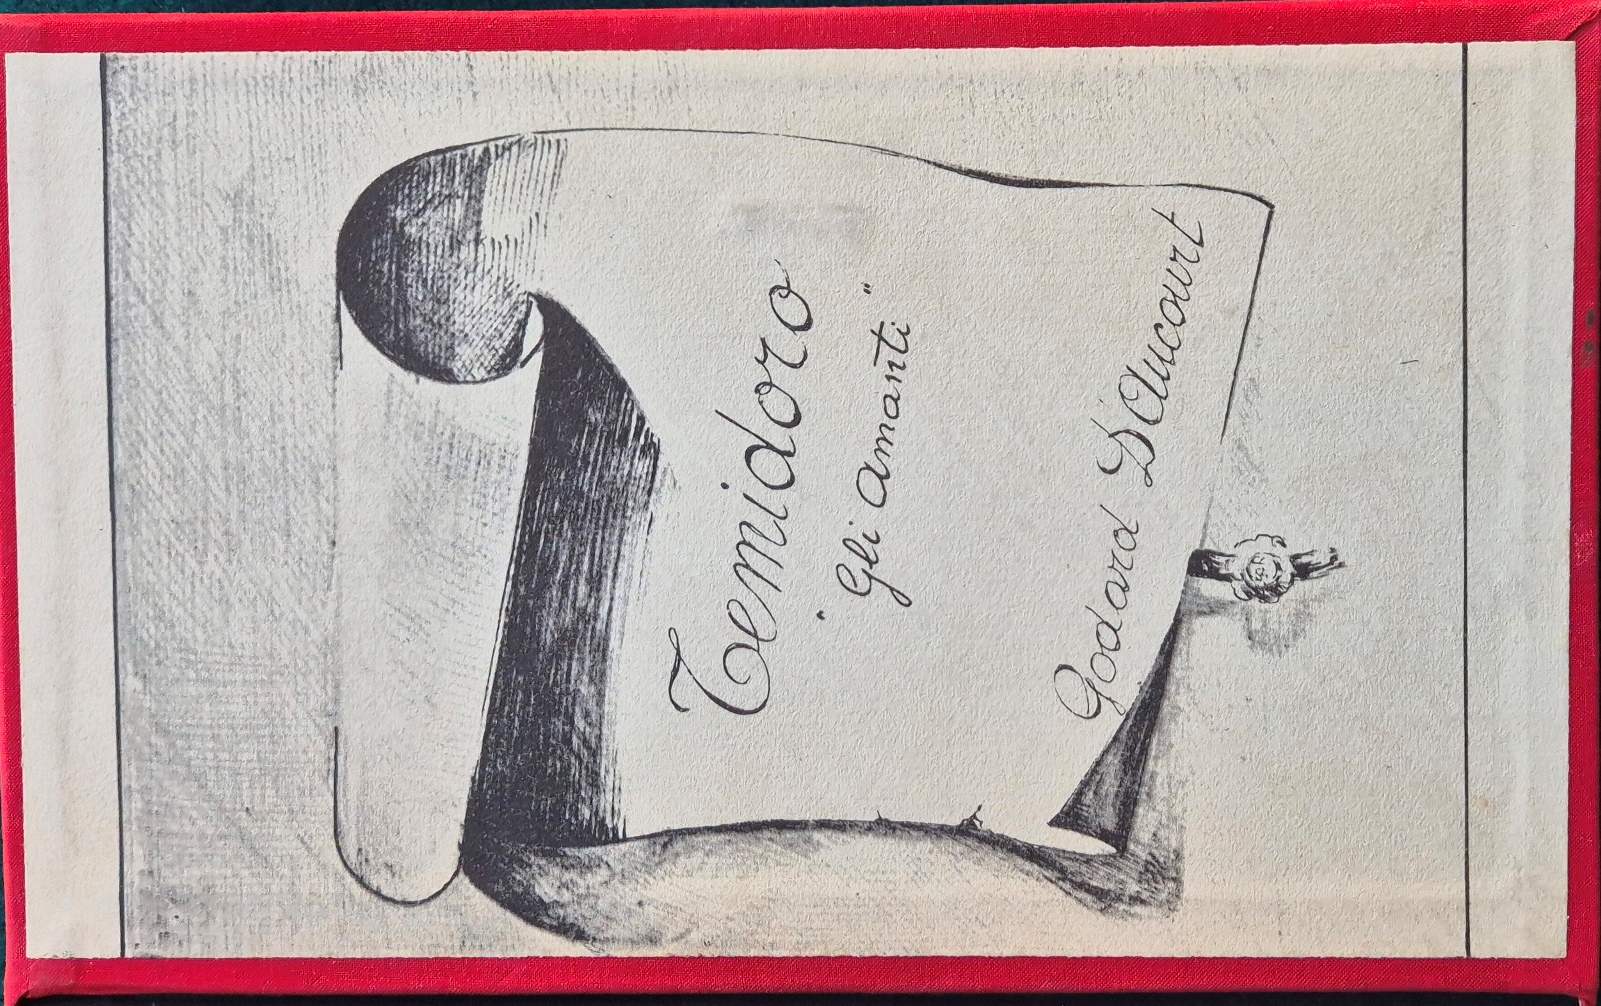 Temidoro
"Gli amanti"
Godard D'Aucourt